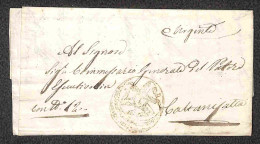 Urgente
Al Signor
Sig.r Commissario Generale del Potere
Esecutivo in
con N. 12
Caltanissetta